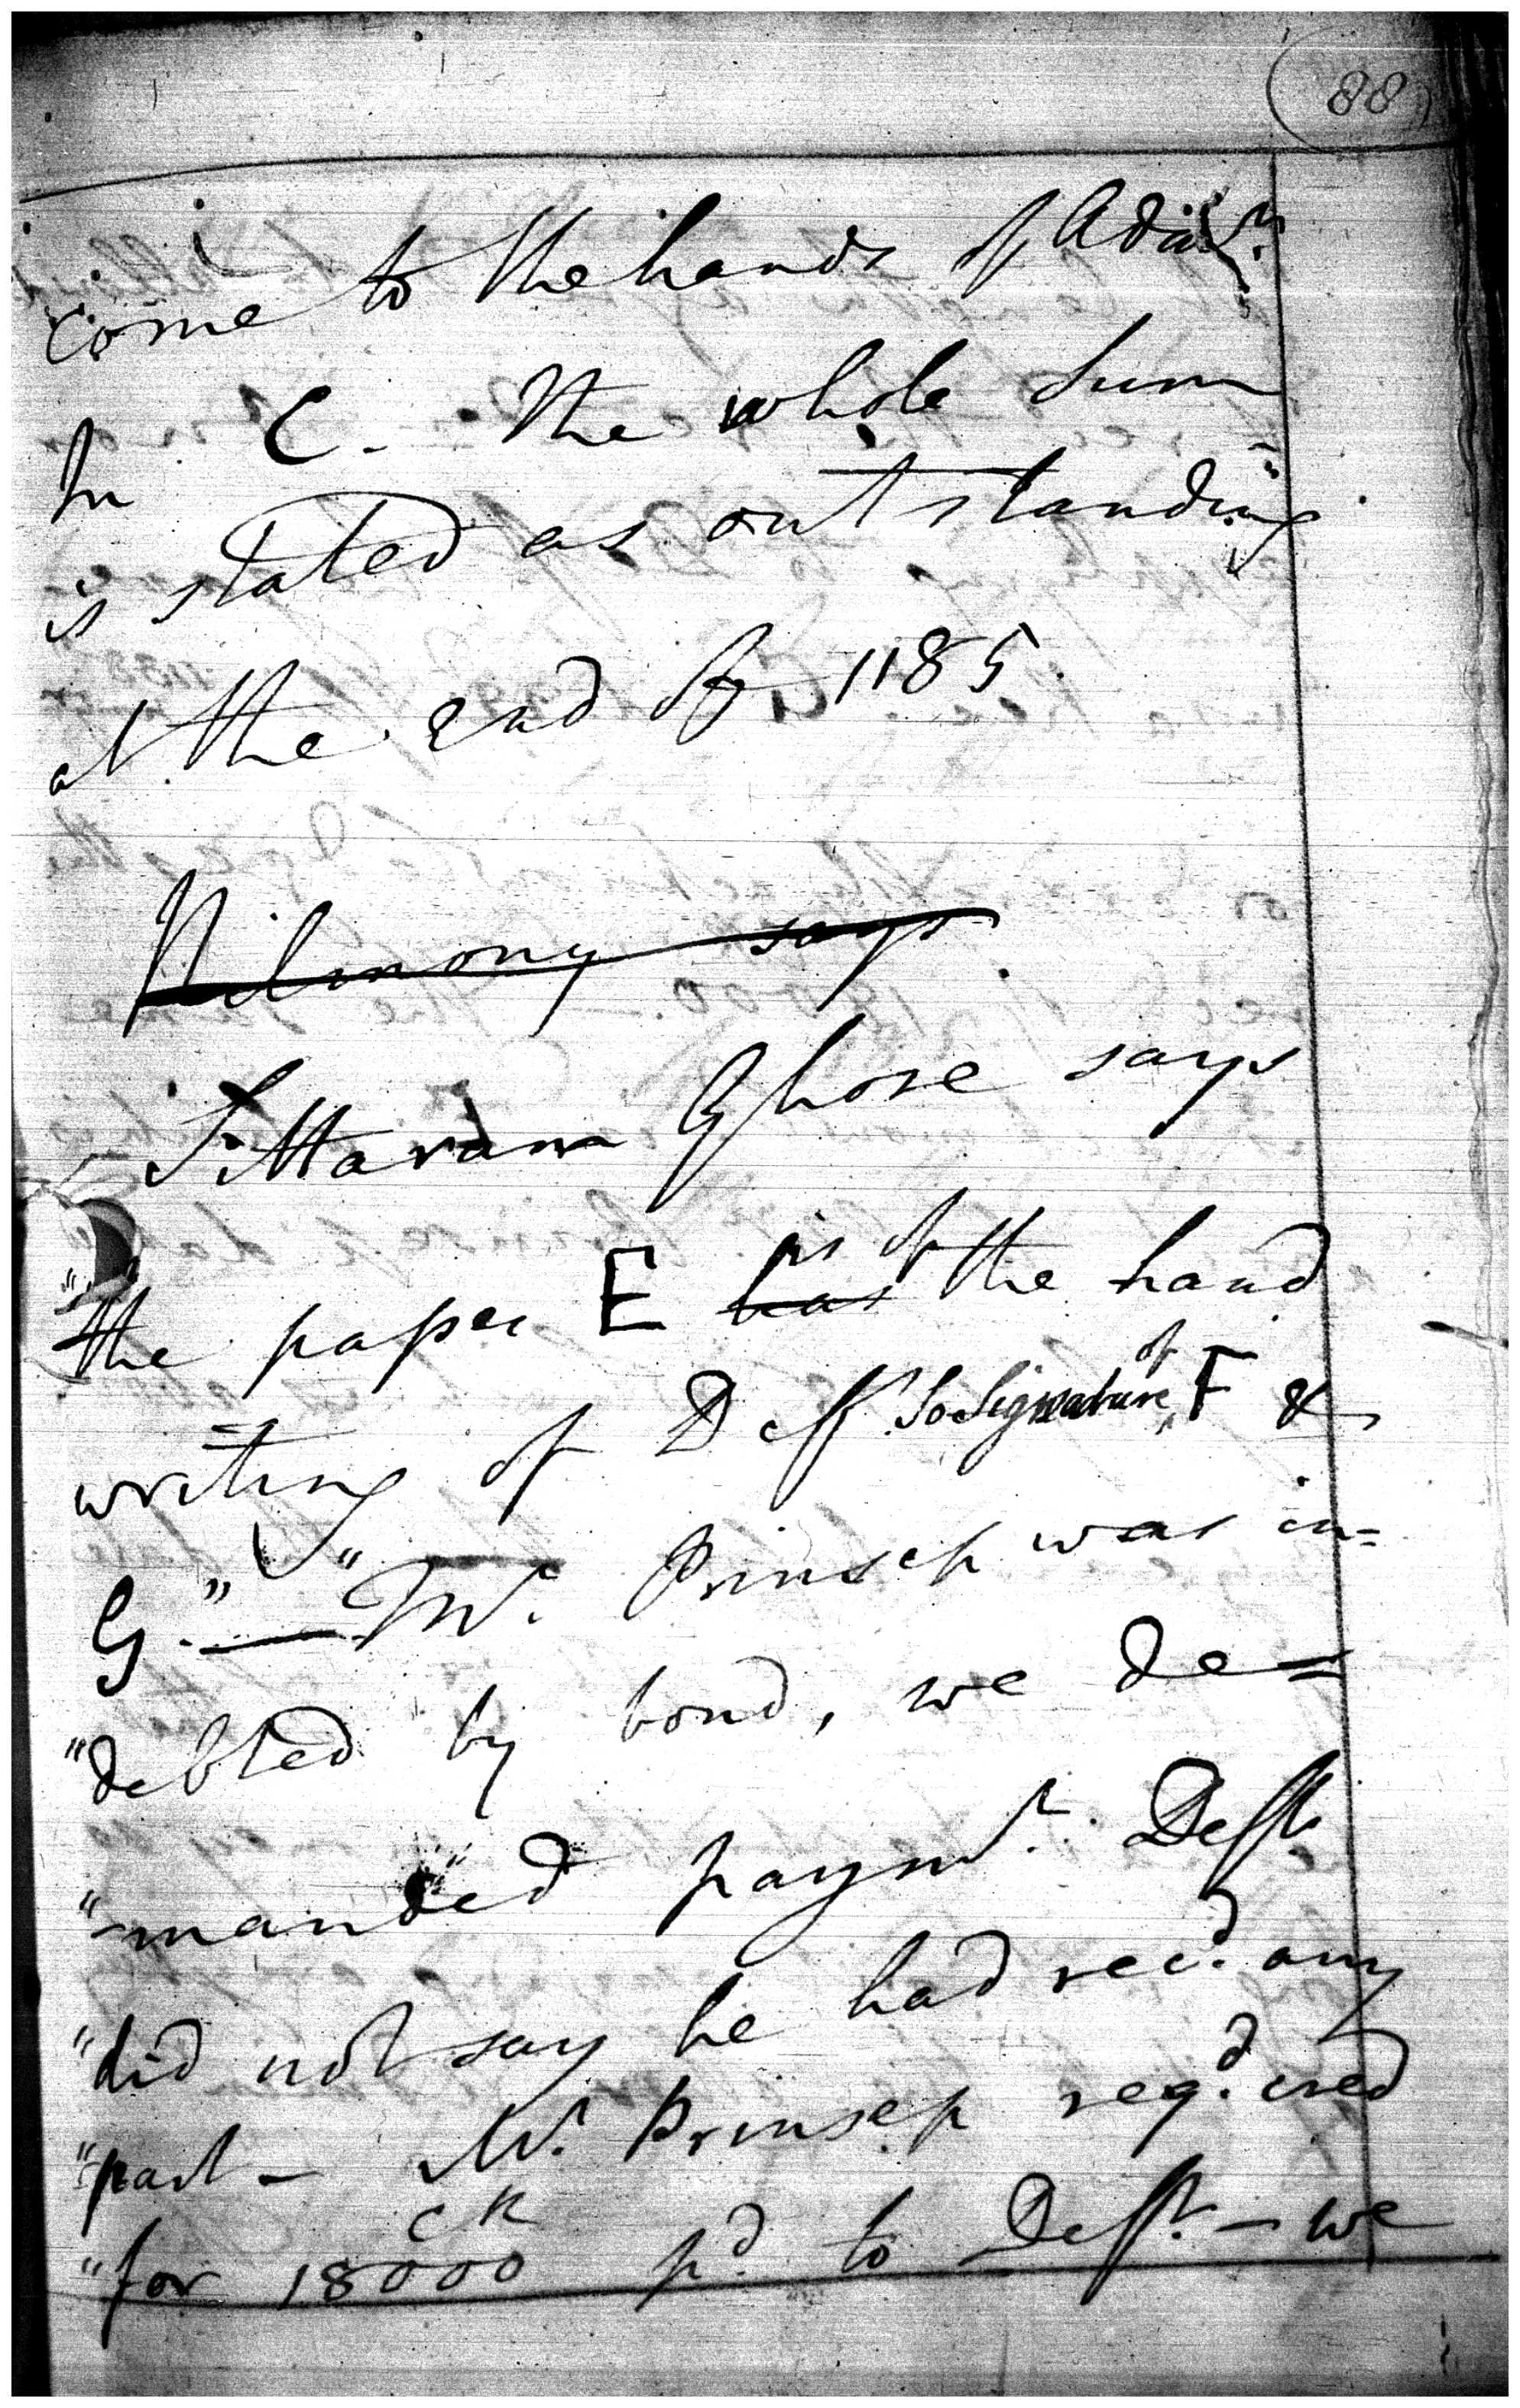 88
come to the hands of
In C. the whole sum
is stated as outstanding
at the end of 1185
Nilmony says
Sittaram Ghose says
"the paper E has is of the hand
writing of Deft. So Signature of F &
G." — "Mr. Prinsep was in=
"debted by bond, we de=
"manded paymt. Deft.
"did not say he had recd. any
"part — Mr. Prinsep reqd. cred
"for 18000 pd. to Deft. — we